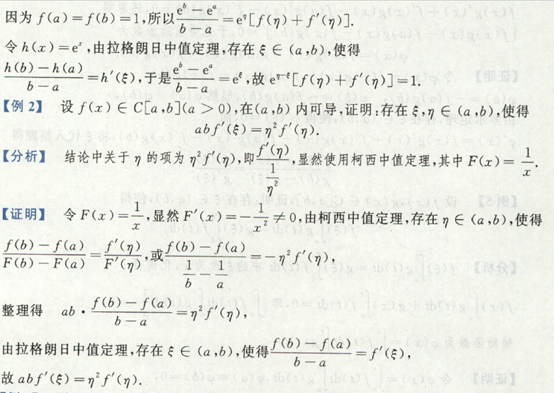 因为 f(a)=f(b)=1,所以\frac{e^b-e^a}{b-a}=e^η[f(η)+f'(η)].
令 h(x)=e^x,由拉格朗日中值定理,存在 ξ∈(a,b),使得
\frac{h(b)-h(a)}{b-a}=h'(ξ),于是\frac{e^b-e^a}{b-a}=e^ξ,故 e^{η-ξ}[f(η)+f'(η)]=1.
【例 2】 设 f(x)∈C[a,b](a>0),在(a,b)内可导,证明,存在 ξ,η∈(a,b),使得
abf'(ξ)=η²f'(η).
【分析】 结论中关于 η 的项为 η²f'(η),即\frac{f'(η)}{\frac{1}{η²}},显然使用柯西中值定理,其中 F(x)=\frac{1}{x}.
【证明】 令 F(x)=\frac{1}{x},显然 F'(x)=-\frac{1}{x²}≠0,由柯西中值定理,存在 η∈(a,b),使得
\frac{f(b)-f(a)}{F(b)-F(a)}=\frac{f'(η)}{F'(η)},或\frac{f(b)-f(a)}{\frac{1}{b}-\frac{1}{a}}=-η²f'(η),
整理得 ab·\frac{f(b)-f(a)}{b-a}=η²f'(η),
由拉格朗日中值定理,存在 ξ∈(a,b),使得\frac{f(b)-f(a)}{b-a}=f'(ξ),
故 abf'(ξ)=η²f'(η).